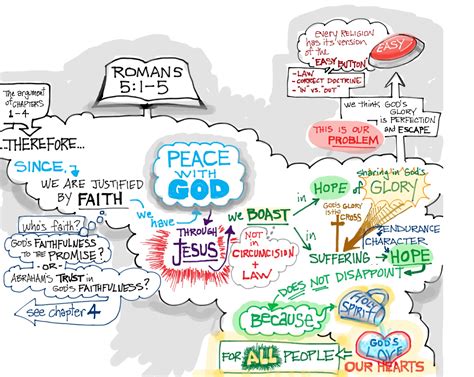 ROMANS
5:1-5
The argument
of CHAPTERS
1-4
...THEREFORE...
SINCE,
WE ARE JUSTIFIED
BY FAITH
who's faith?
GOD'S FAITHFULNESS
TO THE PROMISE?
-OR-
ABRAHAM'S TRUST in
GOD'S FAITHFULNESS?
see chapter 4
we
have
PEACE
WITH
GOD
THROUGH
JESUS
we BOAST
NOT
IN
CIRCUMCISION
+
LAW
in
HOPE of
sharing in God's
GLORY
GOD'S GLORY
IS the
CROSS
in
SUFFERING
ENDURANCE
CHARACTER
HOPE
DOES NOT DISAPPOINT
Because
HOLY
SPIRIT
GOD'S
LOVE
OUR HEARTS
FOR ALL PEOPLE
EVERY RELIGION
HAS its VERSION
of the
"EASY
BUTTON"
EASY
- LAW
- CORRECT DOCTRINE
- "IN" VS. "OUT"
we think GOD'S
GLORY
IS PERFECTION
and ESCAPE
THIS IS OUR
PROBLEM